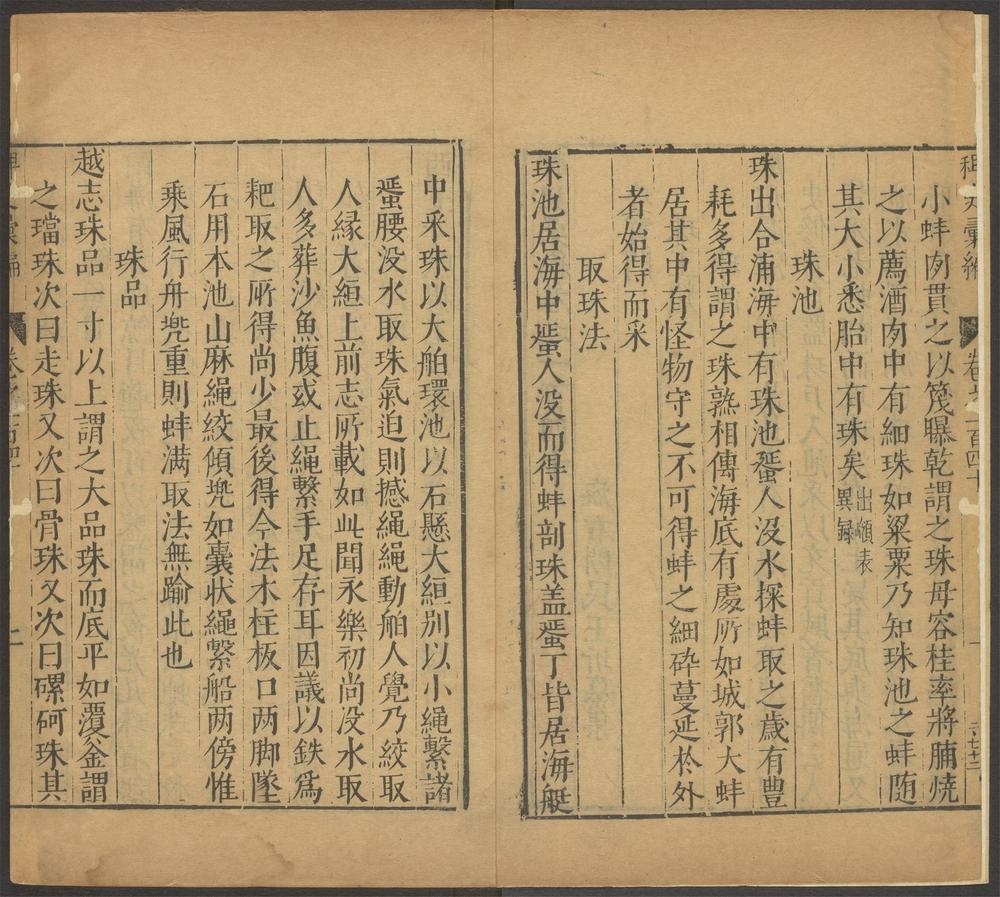 小蚌肉貫之以篾曝乾謂之珠母容桂率將脯燒
之以薦酒肉中有細珠如粱粟乃知珠池之蚌随
其大小悉胎中有珠矣出嶺表異録
珠池
珠出合浦海中有珠池蜑人没水探蚌取之歲有豊
耗多得謂之珠熟相傳海底有處所如城郭大蚌
居其中有怪物守之不可得蚌之細碎蔓延於外
者始得而采
取珠法
珠池居海中蜑人没而得蚌剖珠盖蜑丁皆居海艇
中采珠以大舶環池以石懸大絙别以小繩繫諸
蜑腰没水取珠氣迫則撼繩繩動舶人覺乃絞取
人緣大絙上前志所載如此聞永樂初尚没水取
人多葬沙魚腹或止繩繫手足存耳因議以鉄爲
耙取之所得尚少最後得今法木柱板口两脚墜
石用本池山麻繩絞傾兠如囊狀繩繫船两傍惟
乗風行舟兠重則蚌满取法無踰此也
珠品
越志珠品一寸以上謂之大品珠而底平如覆釜謂
之璫珠次曰走珠又次曰骨珠又次曰磥砢珠其